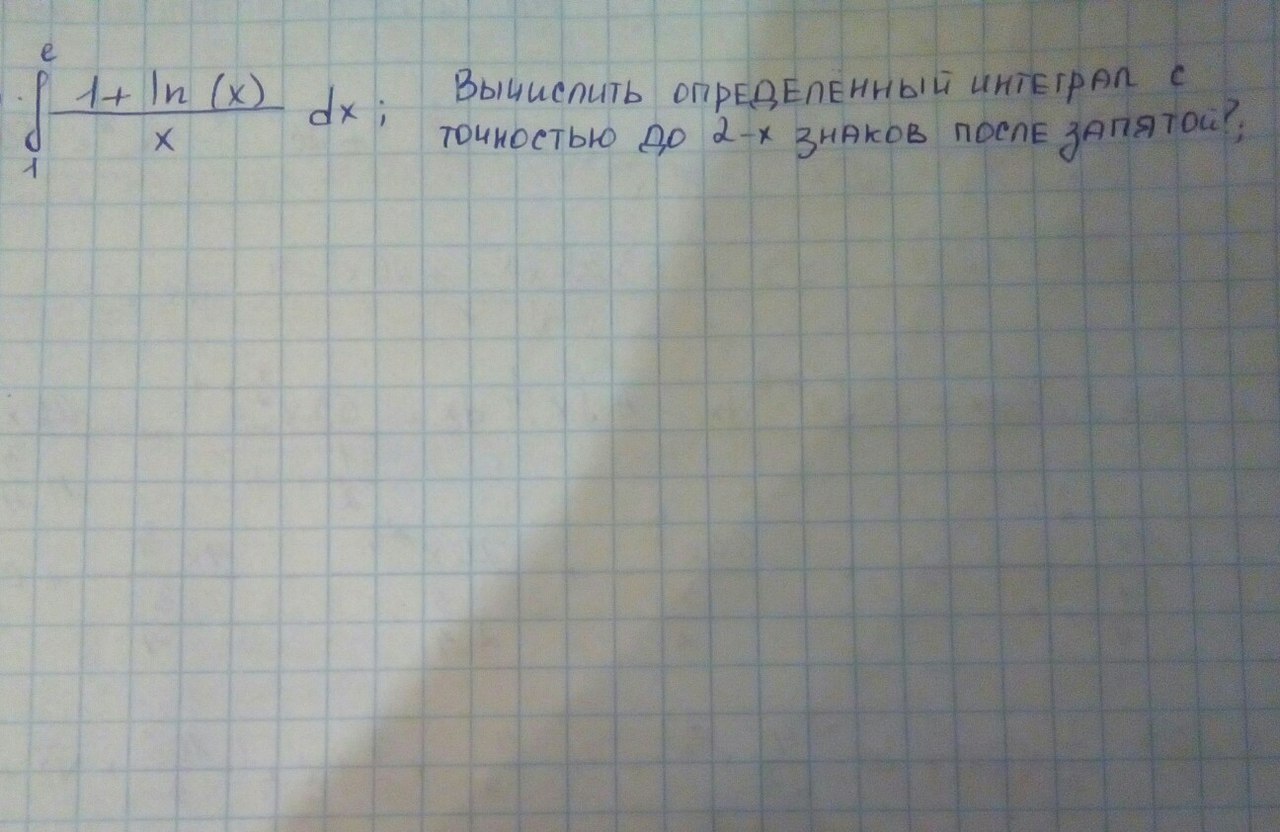 e
∫ 1 + ln (x) / x dx ; Вычислить определённый интеграл с
1 точностью до 2-х знаков после запятой?;